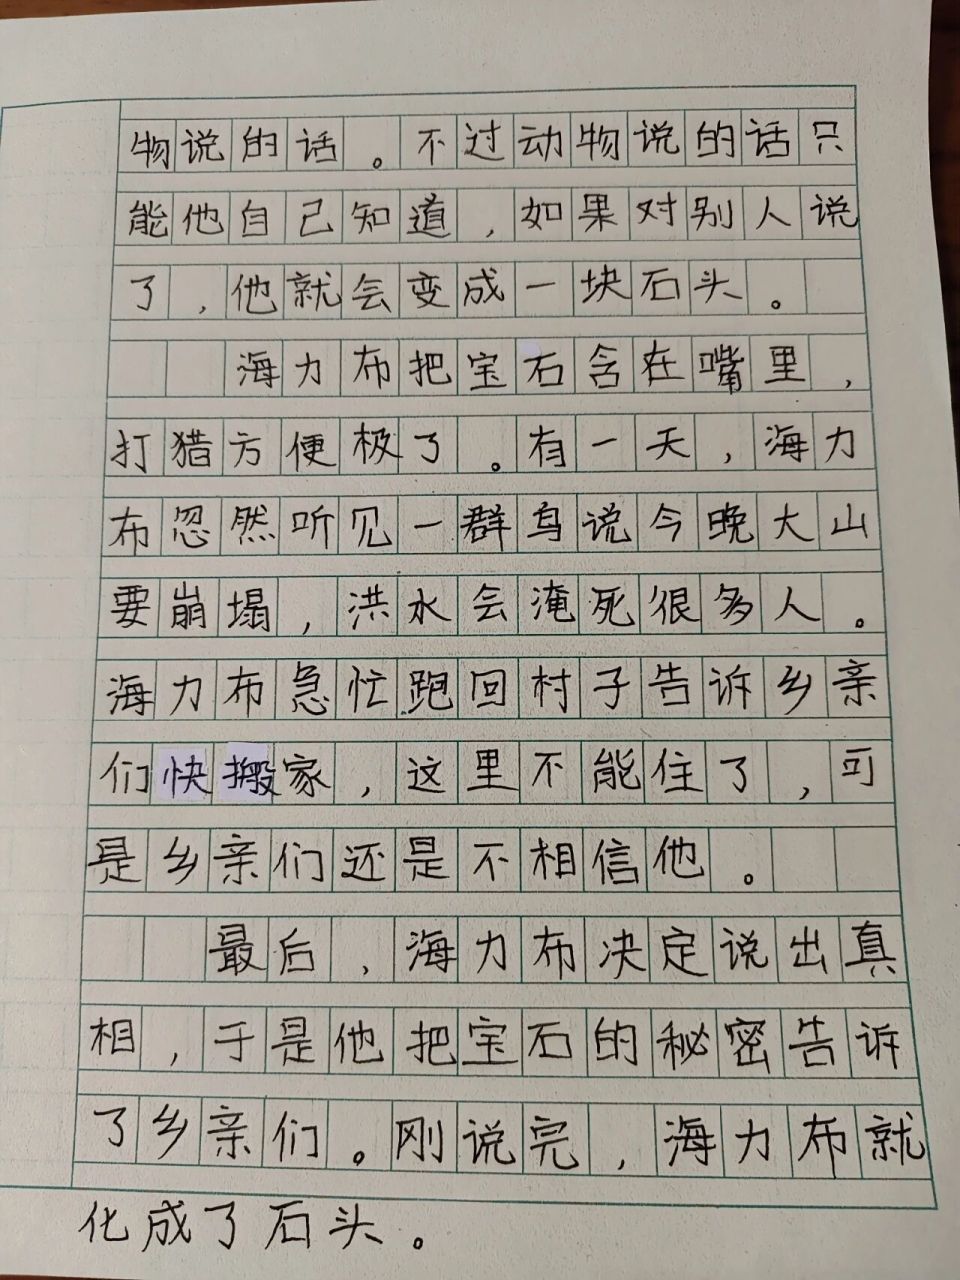 物说的话。不过动物说的话只
能他自己知道，如果对别人说
了，他就会变成一块石头。
海力布把宝石含在嘴里，
打猎方便极了。有一天，海力
布忽然听见一群鸟说今晚大山
要崩塌，洪水会淹死很多人。
海力布急忙跑回村子告诉乡亲
们快搬家，这里不能住了，可
是乡亲们还是不相信他。
最后，海力布决定说出真
相，于是他把宝石的秘密告诉
了乡亲们。刚说完，海力布就
化成了石头。